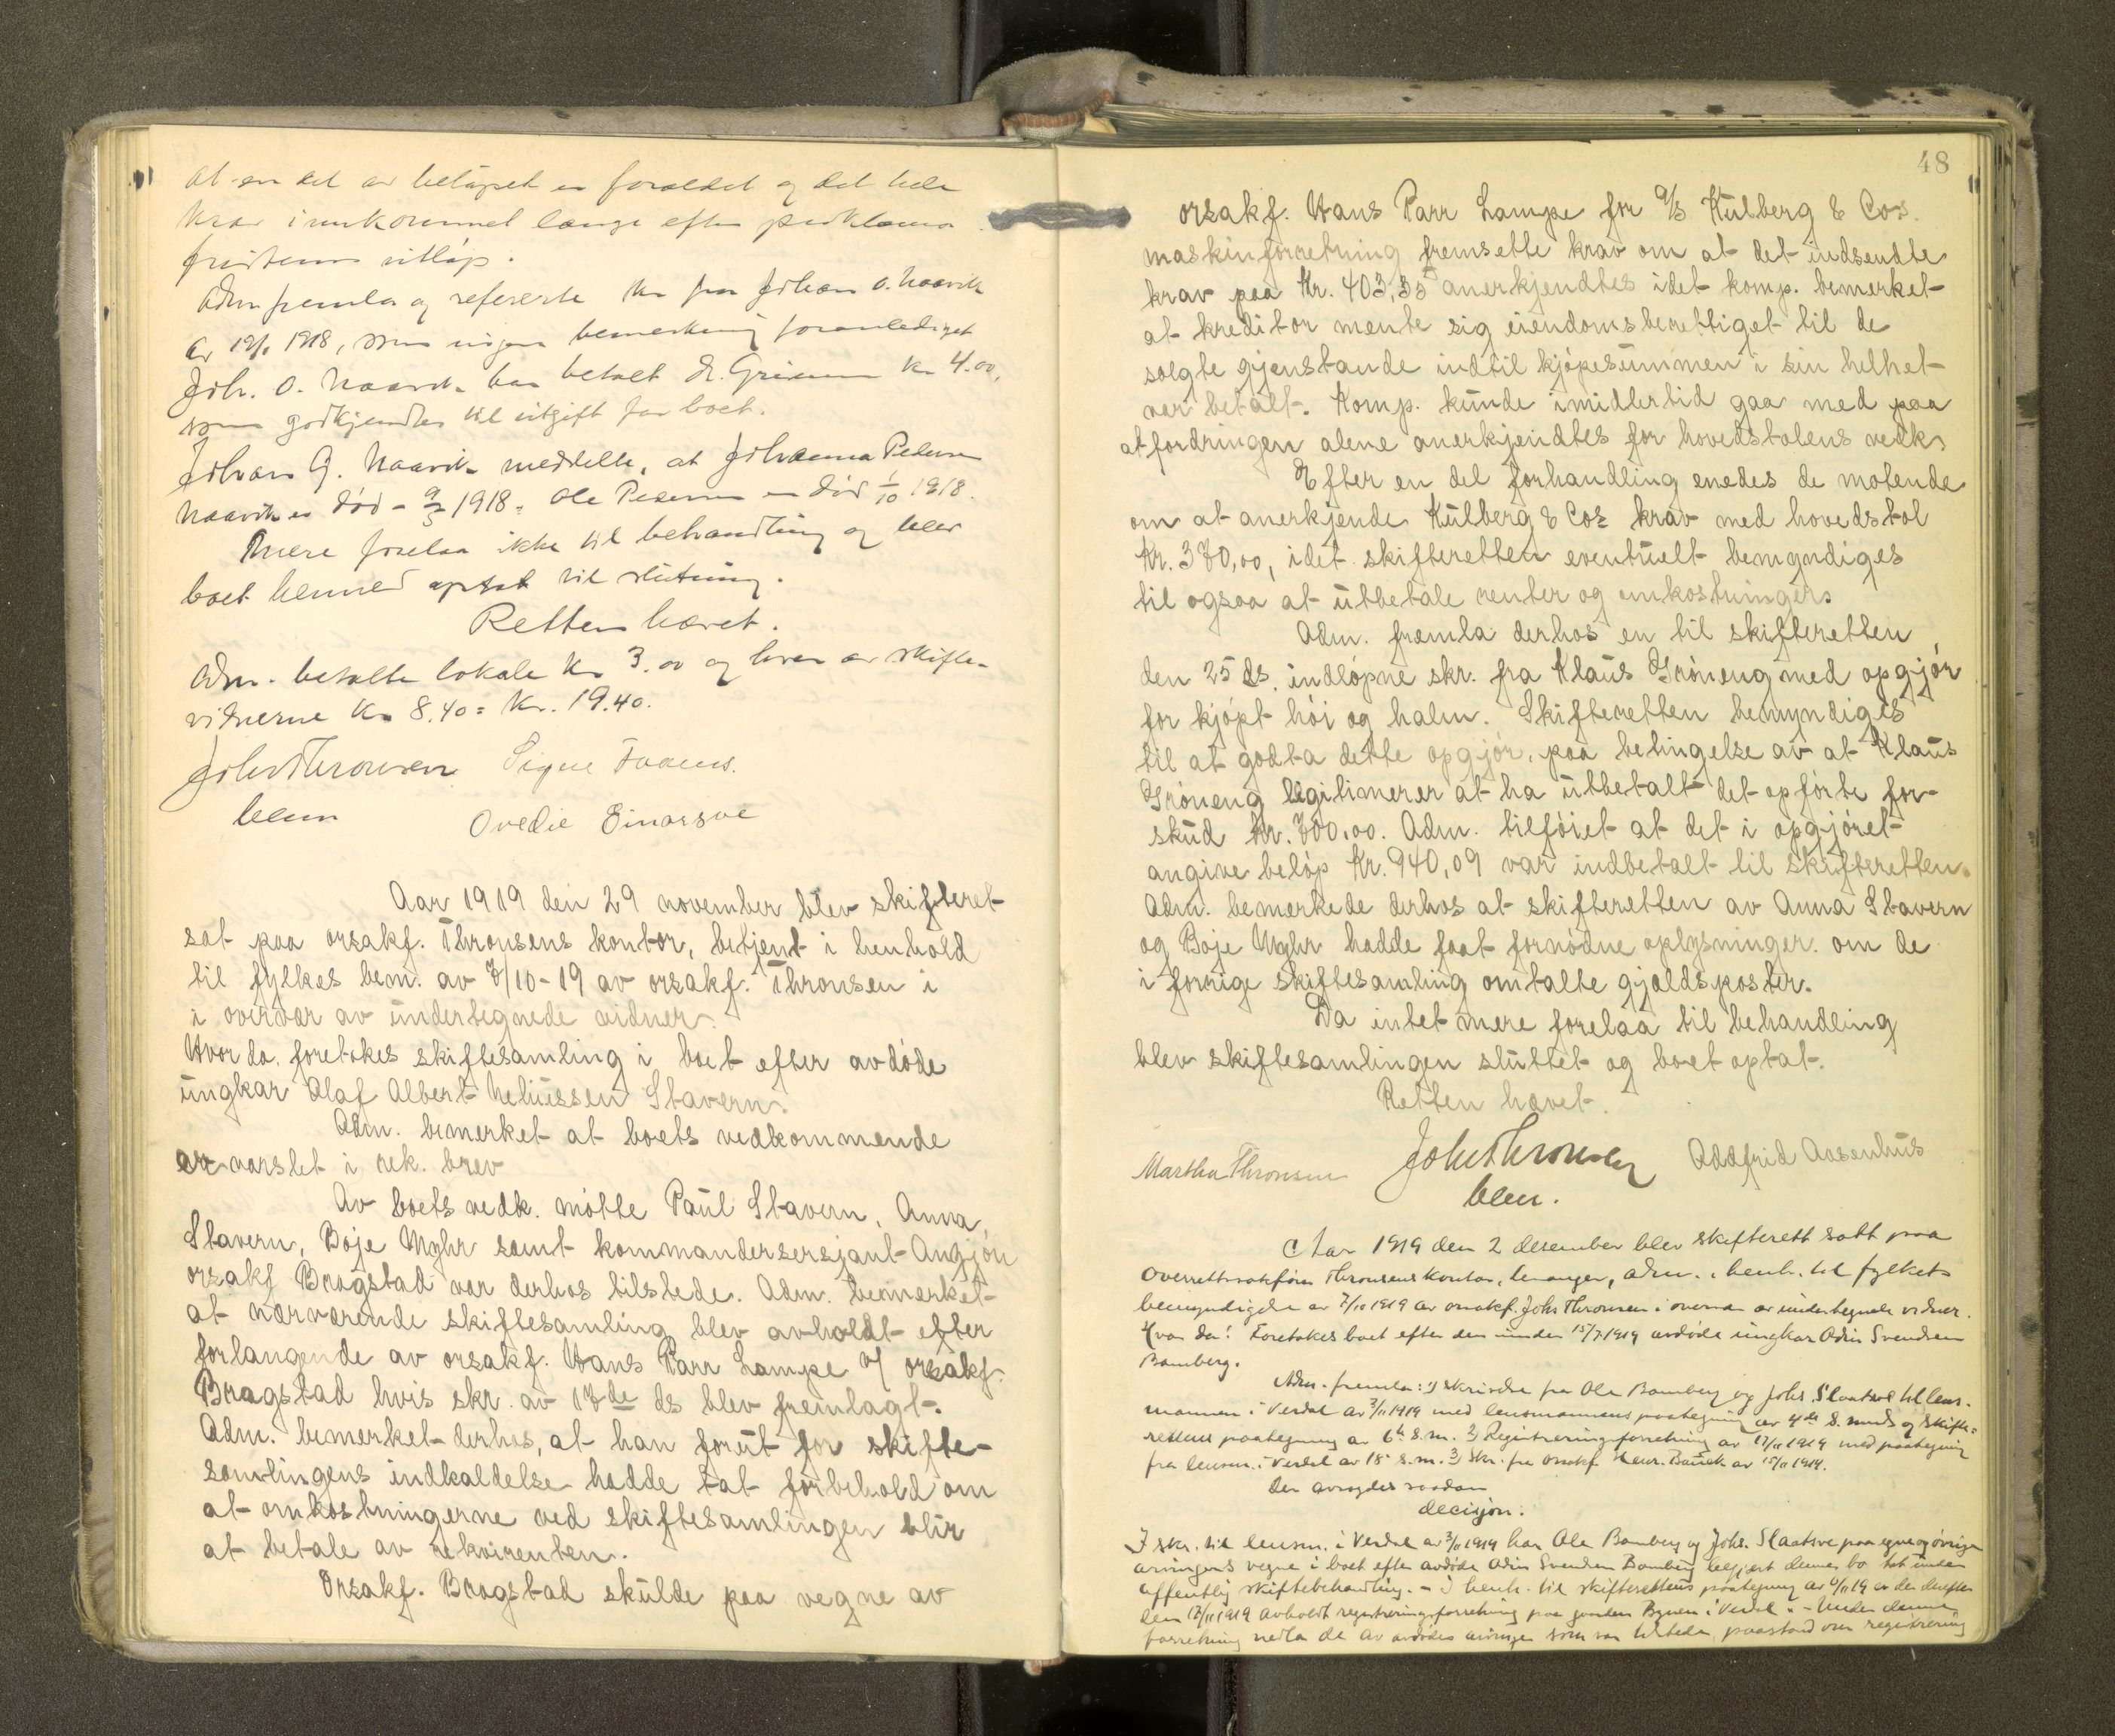 at en del av beløpet er forældet og det hele
krav innkommet længe efter proklama
fristens utløp.
Adm. fremla og refererte skr. fra Johan O. Naavik
av 1918, som ingen bemerkning foranlediget
Joh. O. Naavik har betalt Kr. 4.00,
som godkjendtes til utgift for boet.
Johan G. Naavik meddelte, at Johanna Pedersen
Naavik er død 1918. Ole Pedersen er død 1/10 1918.
Mere forelaa ikke til behandling og blev
boet herved optat til slutning.
Retten hævet.
Adm. betalte lokale Kr. 3.00 og hver av skifte-
vidnerne Kr. 8.40 = Kr. 19.40.
Johs Thronsen Signe
Ovedie
Aar 1919 den 29 november blev skifteret
sat paa orsakf. Thronsens kontor, betjent i henhold
til fylkes bem. av 7/10-19 av orsakf. Thronsen i
i overvær av undertegnede vidner.
Hvor da foretokes skiftesamling i boet efter avdøde
ungkar Olaf Albert Neliussen Stavern.
Adm. bemerket at boets vedkommende
er varslet i rek. brev
Av boets vedk. møtte Paul Stavern, Anna
Stavern, Boje Myhr samt kommandersersjant Angjón
orsakf Bragstad var derhos tilstede. Adm. bemerket
at nærværende skiftesamling blev avholdt efter
forlangende av orsakf. Hans Parr Lampe v/ orsakf.
Bragstad hvis skr. av 17de ds blev fremlagt.
Adm. bemerket derhos, at han forut for skifte-
samlingens indkaldelse hadde tat forbehold om
at omkostningerne ved skiftesamlingen blir
at betale av rekvirenten.
Orsakf. Bragstad skulde paa vegne av
48
orsakf. Hans Parr Lampe for A/S Kulberg & Cos.
maskinforretning fremsette krav om at det indsendte
krav paa Kr. 403,35 anerkjendtes idet komp. bemerket
at kreditor mente sig eiendomsberettiget til de
solgte gjenstande indtil kjøpesummen i sin helhet
var betalt. Komp. kunde imidlertid gaa med paa
at fordringen alene anerkjendtes for hovedstolens vedk.
Efter en del forhandling enedes de møtende
om at anerkjende Kulberg & Cos krav med hovedstol
Kr. 370,00, idet skifteretten eventuelt bemyndiges
til ogsaa at utbetale renter og omkostninger.
Adm. fremla derhos en til skifteretten
den 25 ds. indløpne skr. fra Klaus Grøneng med opgjør
for kjøpt høi og halm. Skifteretten bemyndiges
til at godta dette opgjør, paa betingelse av at Klaus
Grøneng legitimerer at ha utbetalt det opførte for-
skud Kr. 700.00. Adm. tilføiet at det i opgjøret
angivne beløp Kr. 940,09 var indbetalt til skifteretten.
Adm. bemerkede derhos at skifteretten av Anna Stavern
og Boje Myhr hadde faat fornødne oplysninger om de
i forrige skiftesamling omtalte gjældsposter.
Da intet mere forelaa til behandling
blev skiftesamlingen sluttet og boet optat.
Retten hævet.
Martha Thronsen Johs Thronsen Oddfrid Aasenhus
Aar 1919 den 2 desember blev skifterett satt paa
overrettssakfører Thronsens kontor, Levanger, adm. i henh. til fylkets
bemyndigelse av 7/10 1919 av orsakf. Johs Thronsen i overvær av undertegnede vidner.
Hvor da: Foretokes boet efter den under 15/7 1919 avdøde ungkar Odin Svendsen
Bomberg.
Adm. fremla: 1) skrivelse fra Ole Bomberg og Johs. Slaatsve til lens-
mannen i Verdal av 3/11 1919 med lensmannens paategning av 4de s. mnd og skifte-
rettens paategning av 6te s.m. 2) Registreringsforretning av 17/11 1919 med paategning
fra lensm. i Verdal av 18 s.m. 3) Skr. fra orsakf. av 15/11 1919.
Der avsagdes saadan
decisjon:
I skr. til lensm. i Verdal av 3/11 1919 har Ole Bomberg og Johs. Slaatsve paa egne og øvrige
arvingers vegne i boet efter avdøde Odin Svendsen Bomberg begjært dennes bo tat under
offentlig skiftebehandling. - I henh. til skifterettens paategning av 6/11 19 er der derefter
den 17/11 1919 avholdt registreringsforretning paa gaarden i Verdal. - Under denne
forretning nedla de av avdødes arvinger som var tilstede, paastand om registrering